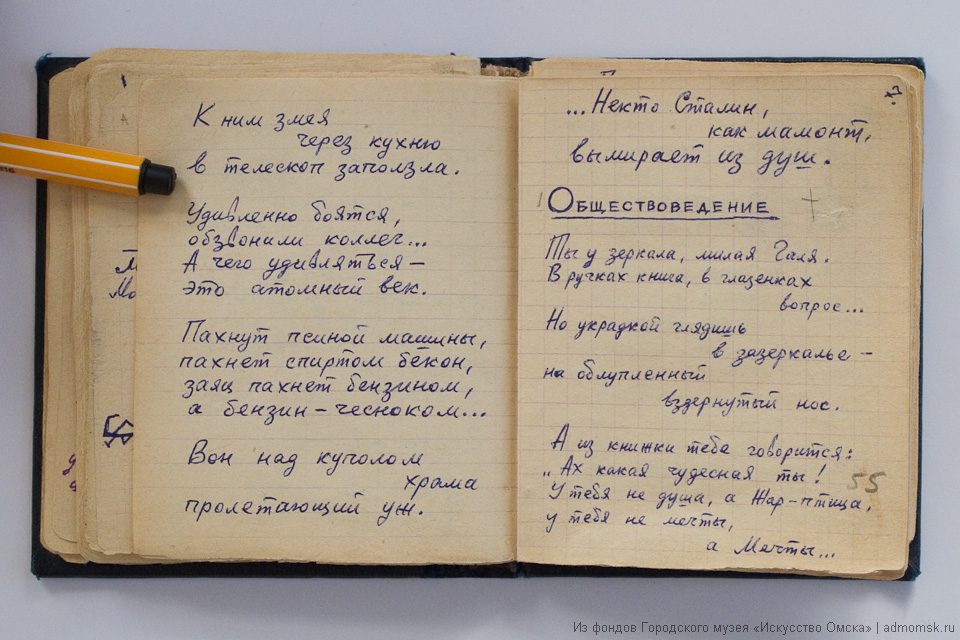 К ним змея
через кухню
в телескоп заползла.
Удивленно боятся,
обзвонили коллег...
А чего удивляться –
это атомный век.
Пахнут псиной машины,
пахнет спиртом бекон,
заяц пахнет бензином,
а бензин – чесноком...
Вон над куполом
храма
пролетающий уж.
...Некто Сталин,
как мамонт,
вымирает из душ.
Обществоведение
Ты у зеркала, милая Галя.
В ручках книга, в глазенках
вопрос...
Но украдкой глядишь
в зазеркалье –
на облупленный
вздернутый нос.
А из книжки тебе говорится:
„Ах какая чудесная ты!
У тебя не душа, а Жар-птица,
у тебя не мечты,
а Мечты...
55
Из фондов Городского музея «Искусство Омска» | admomsk.ru